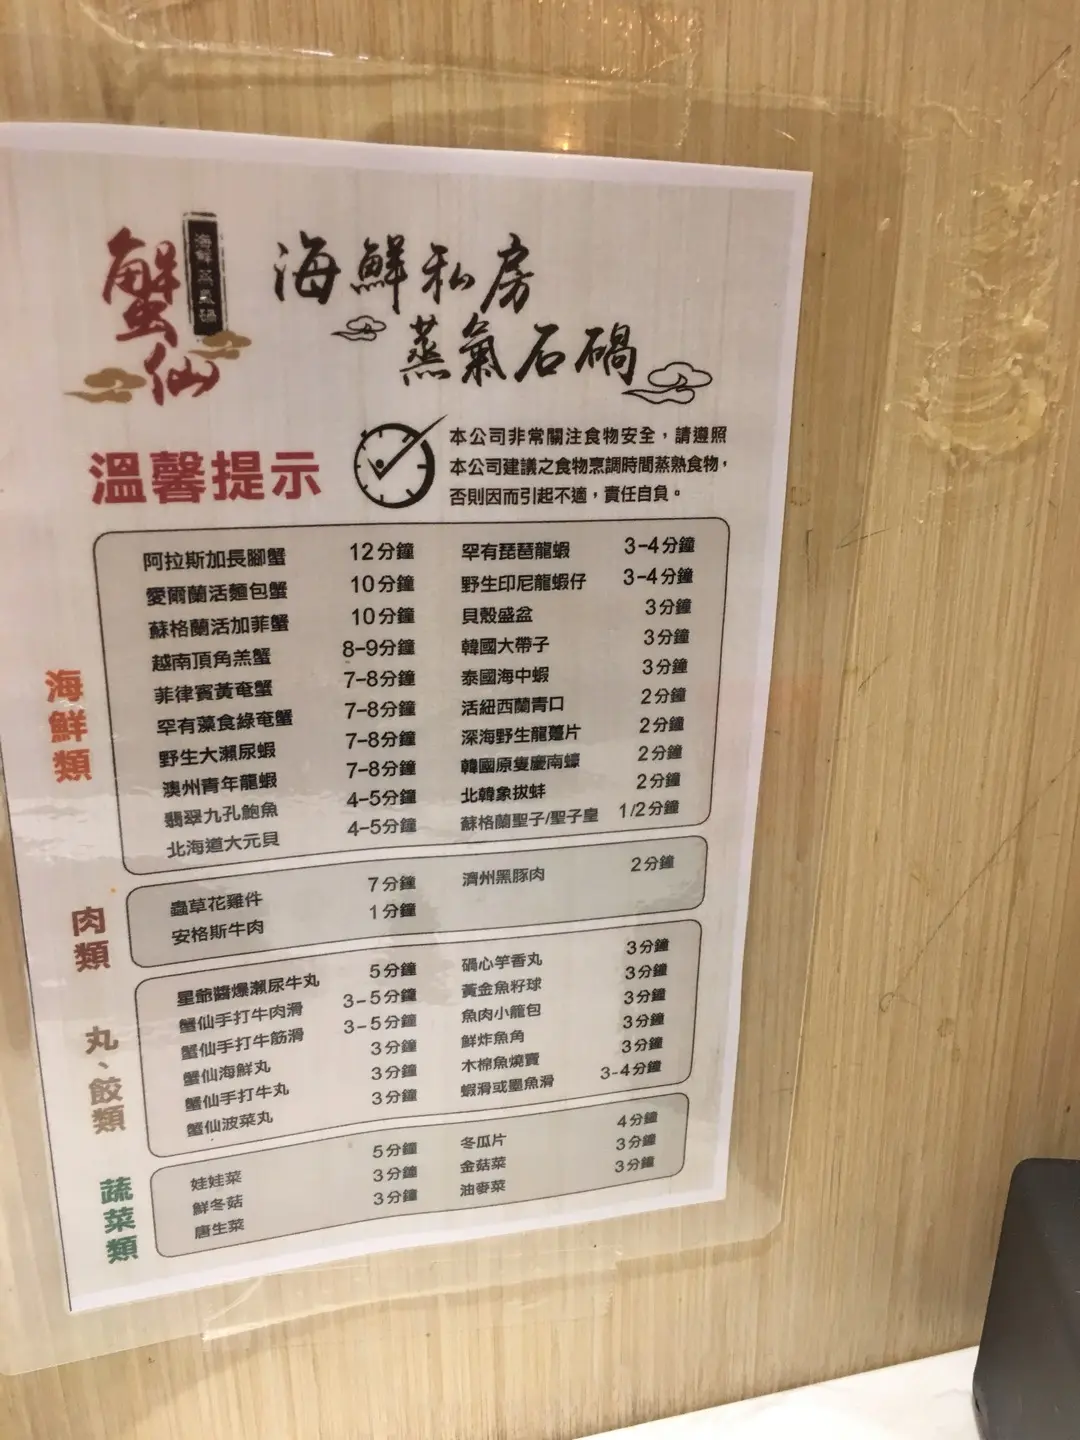 蟹仙
海鮮蒸氣鍋
海鮮私房
蒸氣石鍋
溫馨提示
本公司非常關注食物安全，請遵照
本公司建議之食物烹調時間蒸熟食物，
否則因而引起不適，責任自負。
海鮮類
阿拉斯加長腳蟹 12分鐘
愛爾蘭活麵包蟹 10分鐘
蘇格蘭活加菲蟹 10分鐘
越南頂角羔蟹 8-9分鐘
菲律賓黃奄蟹 7-8分鐘
罕有藻食綠奄蟹 7-8分鐘
野生大瀨尿蝦 7-8分鐘
澳州青年龍蝦 7-8分鐘
翡翠九孔鮑魚 4-5分鐘
北海道大元貝 4-5分鐘
罕有琵琶龍蝦 3-4分鐘
野生印尼龍蝦仔 3-4分鐘
貝殼盛盆 3分鐘
韓國大帶子 3分鐘
泰國海中蝦 3分鐘
活紐西蘭青口 2分鐘
深海野生龍躉片 2分鐘
韓國原隻慶南蠔 2分鐘
北韓象拔蚌 2分鐘
蘇格蘭聖子/聖子皇 1/2分鐘
肉類
蟲草花雞件 7分鐘
安格斯牛肉 1分鐘
濟州黑豚肉 2分鐘
丸、餃類
星爺醬爆瀨尿牛丸 5分鐘
蟹仙手打牛肉滑 3-5分鐘
蟹仙手打牛筋滑 3-5分鐘
蟹仙海鮮丸 3分鐘
蟹仙手打牛丸 3分鐘
蟹仙波菜丸 3分鐘
禍心竽香丸 3分鐘
黃金魚籽球 3分鐘
魚肉小籠包 3分鐘
鮮炸魚角 3分鐘
木棉魚燒賣 3分鐘
蝦滑或墨魚滑 3-4分鐘
蔬菜類
娃娃菜 5分鐘
鮮冬菇 3分鐘
唐生菜 3分鐘
冬瓜片 4分鐘
金菇菜 3分鐘
油麥菜 3分鐘